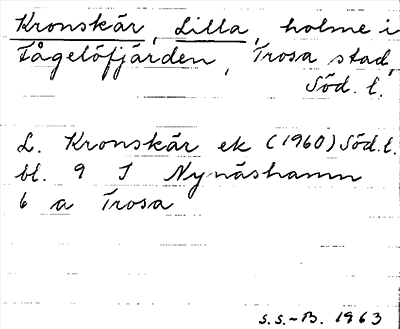 Kronskär, Lilla, holme i
Fågelöfjärden, Trosa stad,
Söd. l.
L. Kronskär ek (1960) Söd. l.
bl. 9 I Nynäshamn
6 a Trosa
S.S.-B. 1963